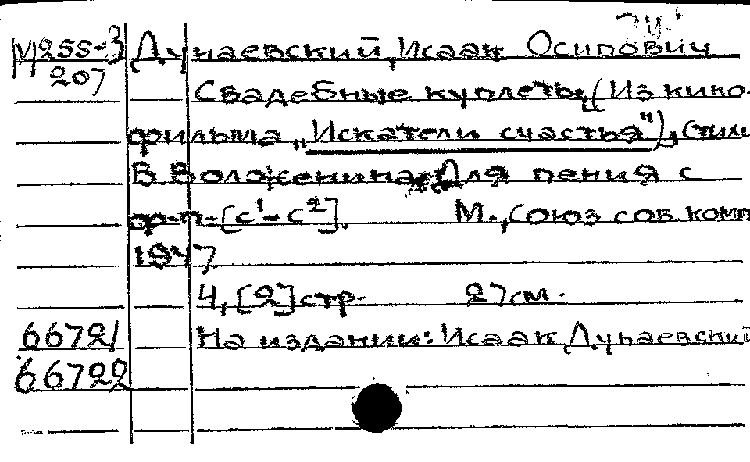 М255-3 Дунаевский, Исаак Осипович
207
Свадебные куплеты. (Из кино-
фильма „Искатели счастья"). Стихи
В. Воложенина. Для пения с
ф-п. [c¹-c²]. М., Союз сов комп
1947
4, [2] стр. 27 см.
66721 На издании: Исаак Дунаевский
66722